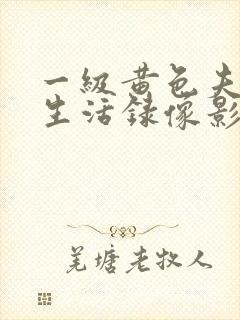 一級黄色夫
生活録像影
羌塘老牧人